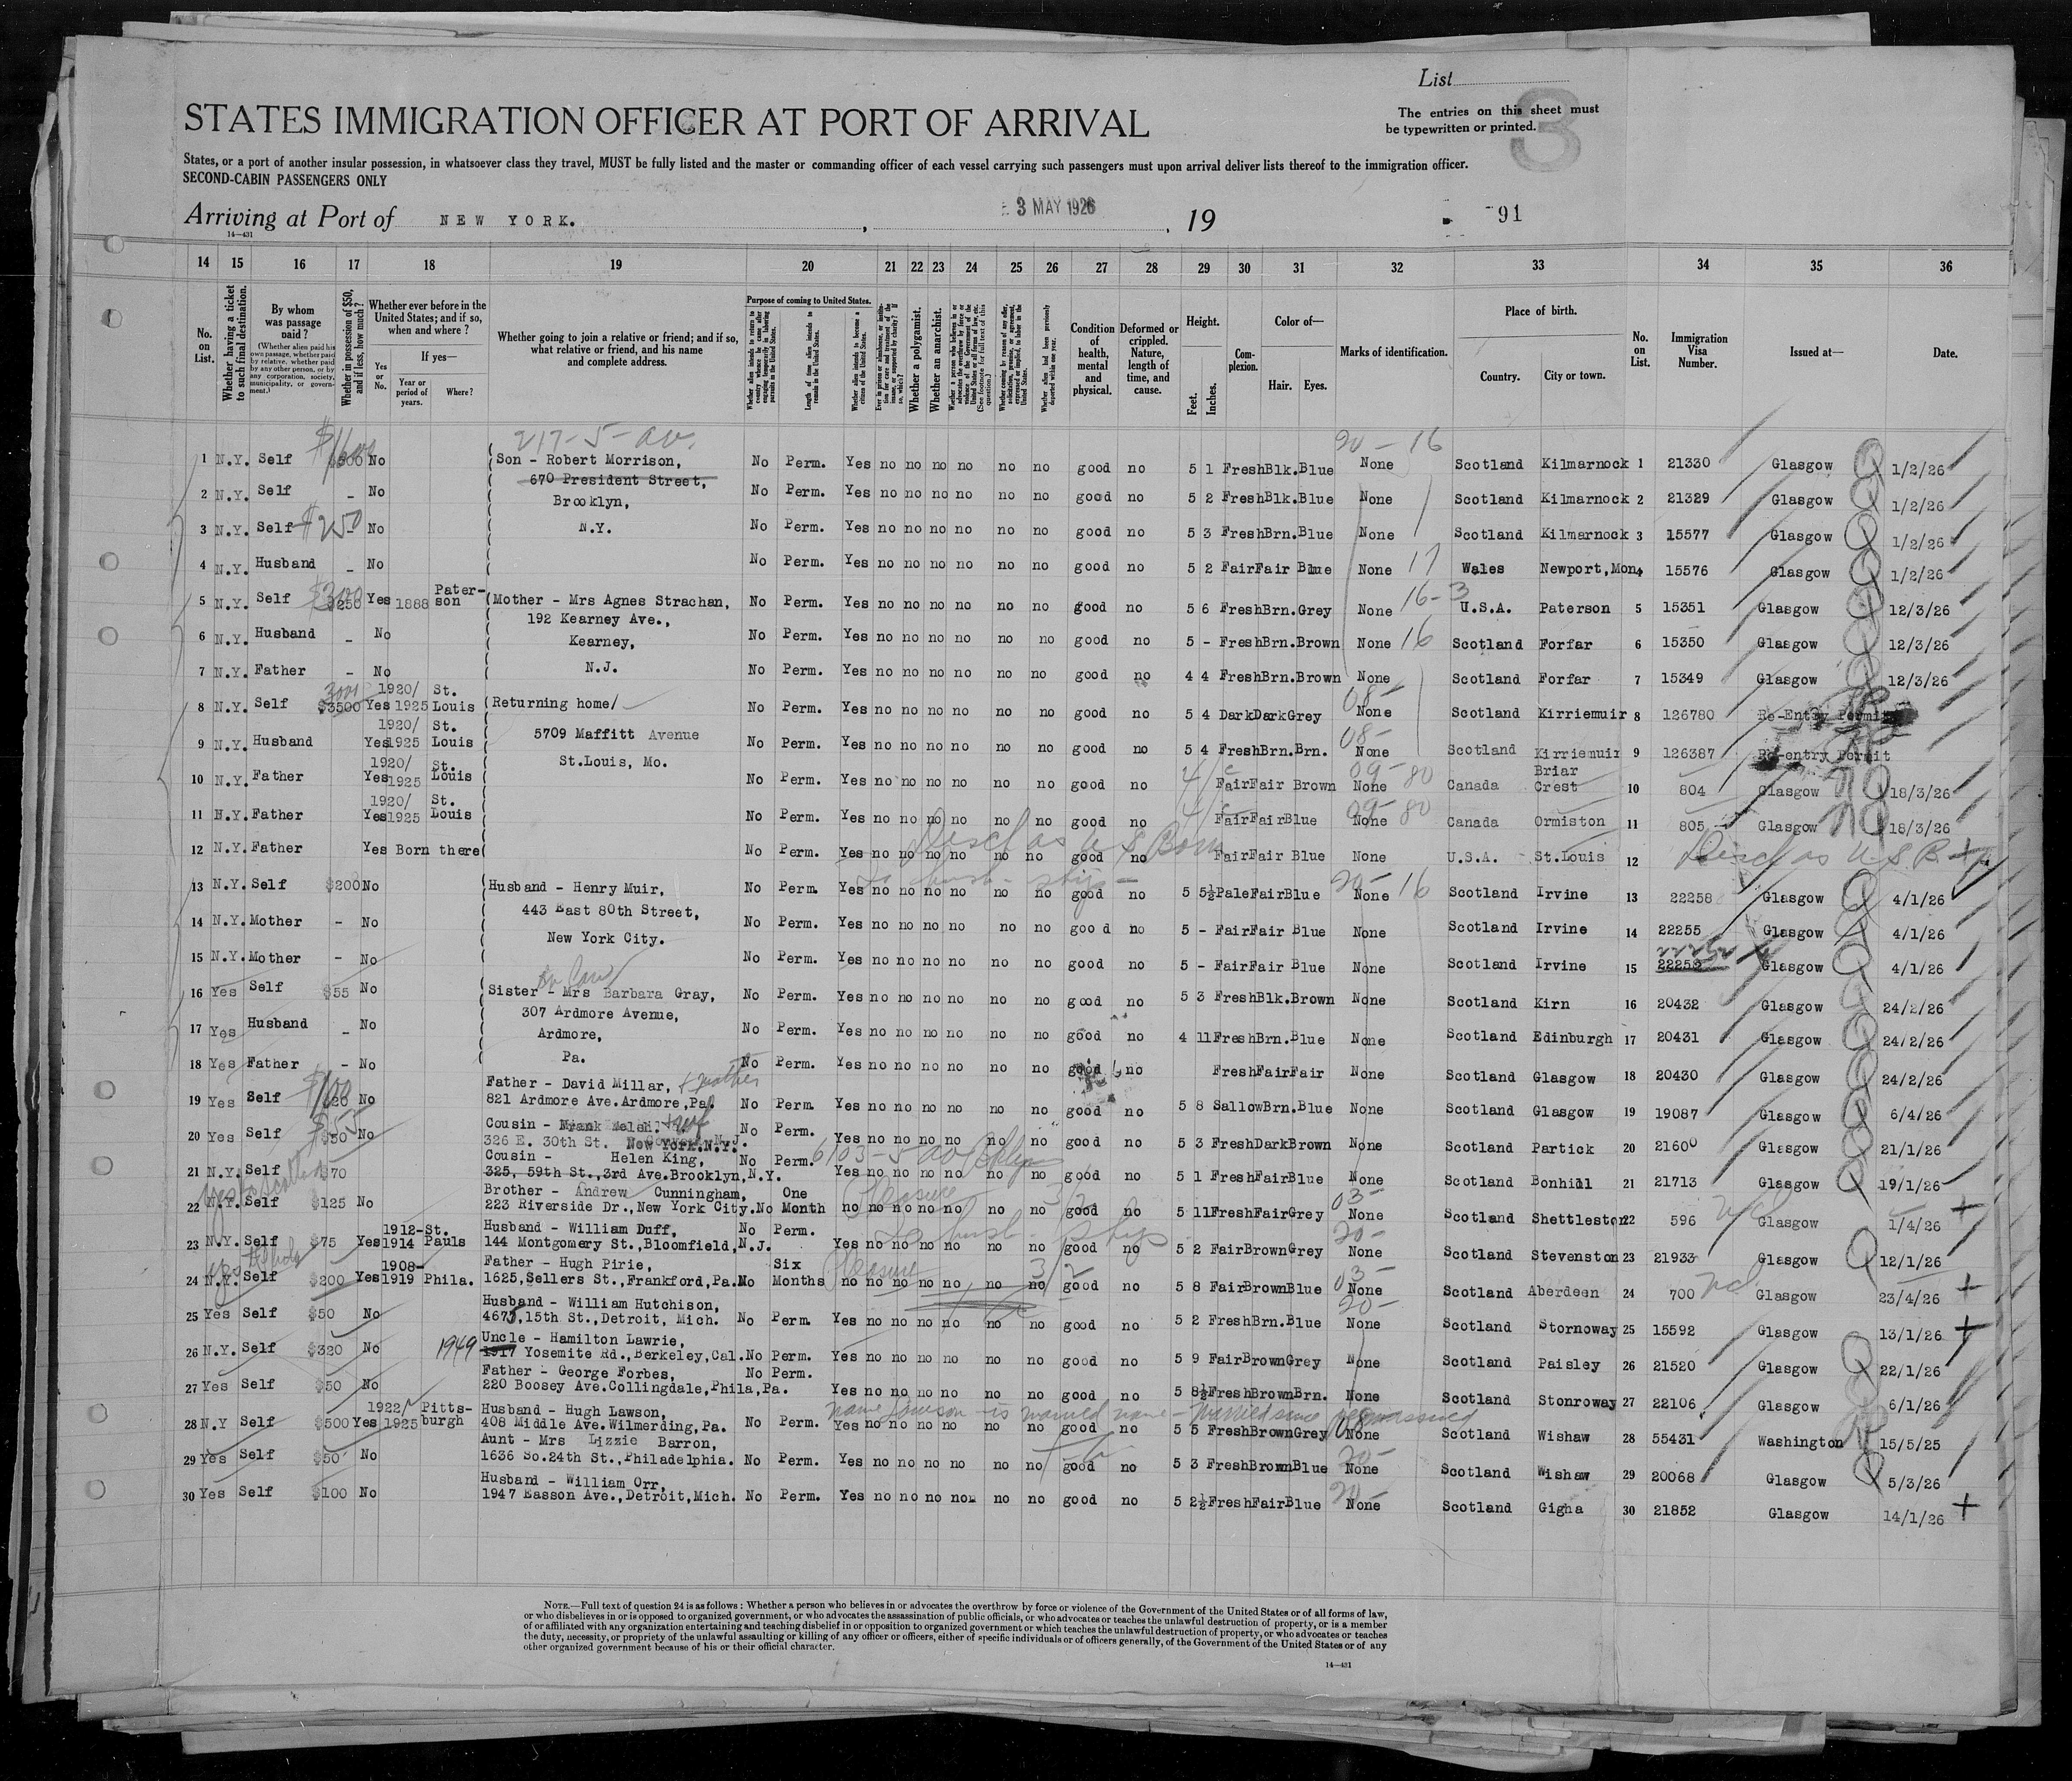 List
3
STATES IMMIGRATION OFFICER AT PORT OF ARRIVAL
The entries on this sheet must
be typewritten or printed.
States, or a port of another insular possession, in whatsoever class they travel, MUST be fully listed and the master or commanding officer of each vessel carrying such passengers must upon arrival deliver lists thereof to the immigration officer.
SECOND-CABIN PASSENGERS ONLY
Arriving at Port of NEW YORK. , 3 MAY 1926 , 19 91
14—431
14 15 16 17 18 19 20 21 22 23 24 25 26 27 28 29 30 31 32 33 34 35 36
No. on List.
Whether having a ticket to such final destination.
By whom was passage paid?
(Whether alien paid his own passage, whether paid by relative, whether paid by any other person, or by any corporation, society, municipality, or government.)
Whether in possession of $50, and if less, how much?
Whether ever before in the United States; and if so, when and where?
Yes or No.
If yes—
Year or period of years.
Where?
Whether going to join a relative or friend; and if so, what relative or friend, and his name and complete address.
Purpose of coming to United States.
Whether alien intends to return to country whence he came after engaging temporarily in laboring pursuits in the United States.
Length of time alien intends to remain in the United States.
Whether alien intends to become a citizen of the United States.
Ever in prison or almshouse, or institution for care and treatment of the insane, or supported by charity? If so, which?
Whether a polygamist.
Whether an anarchist.
Whether a person who believes in or advocates the overthrow by force or violence of the Government of the United States or all forms of law, etc. (See footnote for full text of this question.)
Whether coming by reason of any offer, solicitation, promise, or agreement, expressed or implied, to labor in the United States.
Whether alien had been previously deported within one year.
Condition of health, mental and physical.
Deformed or crippled. Nature, length of time, and cause.
Height.
Feet. Inches.
Complexion.
Color of—
Hair. Eyes.
Marks of identification.
Place of birth.
Country. City or town.
No. on List.
Immigration Visa Number.
Issued at—
Date.
217-5-av. 20-16
1 N.Y. Self $500 No Son - Robert Morrison, No Perm. Yes no no no no no no good no 5 1 Fresh Blk. Blue None Scotland Kilmarnock 1 21330 Glasgow 1/2/26
670 President Street,
2 N.Y. Self - No Brooklyn, No Perm. Yes no no no no no no good no 5 2 Fresh Blk. Blue None Scotland Kilmarnock 2 21329 Glasgow 1/2/26
3 N.Y. Self $250 - No N.Y. No Perm. Yes no no no no no no good no 5 3 Fresh Brn. Blue None Scotland Kilmarnock 3 15577 Glasgow 1/2/26
4 N.Y. Husband - No No Perm. Yes no no no no no no good no 5 2 Fair Fair Blue None 17 Wales Newport, Mon. 4 15576 Glasgow 1/2/26
5 N.Y. Self $300 $250 Yes 1888 Paterson Mother - Mrs Agnes Strachan, No Perm. Yes no no no no no no good no 5 6 Fresh Brn. Grey None 16-3 U.S.A. Paterson 5 15351 Glasgow 12/3/26
192 Kearney Ave.,
6 N.Y. Husband - No Kearney, No Perm. Yes no no no no no no good no 5 - Fresh Brn. Brown None 16 Scotland Forfar 6 15350 Glasgow 12/3/26
7 N.Y. Father - No N.J. No Perm. Yes no no no no no no good no 4 4 Fresh Brn. Brown None Scotland Forfar 7 15349 Glasgow 12/3/26
8 N.Y. Self $3500 Yes 1920/1925 St. Louis (Returning home/ No Perm. Yes no no no no no no good no 5 4 Dark Dark Grey 08- None Scotland Kirriemuir 8 126780 Re-Entry Permit
9 N.Y. Husband Yes 1920/1925 St. Louis 5709 Maffitt Avenue No Perm. Yes no no no no no no good no 5 4 Fresh Brn. Brn. 08- None Scotland Kirriemuir 9 126387 Re-entry Permit
St.Louis, Mo.
10 N.Y. Father Yes 1920/1925 St. Louis No Perm. Yes no no no no no no good no Fair Fair Brown 09-80 None Canada Briar Crest 10 804 Glasgow 18/3/26
11 N.Y. Father Yes 1920/1925 St. Louis No Perm. Yes no no no no no no good no Fair Fair Blue 09-80 None Canada Ormiston 11 805 Glasgow 18/3/26
Disch as U S Born
12 N.Y. Father Yes Born there No Perm. Yes no no no no no no good no Fair Fair Blue None U.S.A. St.Louis 12 Disch as U S B
13 N.Y. Self $200 No Husband - Henry Muir, No Perm. Yes no no no no no no good no 5 5½ Pale Fair Blue 20- None 16 Scotland Irvine 13 22258 Glasgow 4/1/26
443 East 80th Street,
14 N.Y. Mother - No No Perm. Yes no no no no no no good no 5 - Fair Fair Blue None Scotland Irvine 14 22255 Glasgow 4/1/26
New York City.
15 N.Y. Mother - No No Perm. Yes no no no no no no good no 5 - Fair Fair Blue None Scotland Irvine 15 22252 Glasgow 4/1/26
in law
16 Yes Self $55 No Sister - Mrs Barbara Gray, No Perm. Yes no no no no no no good no 5 3 Fresh Blk. Brown None Scotland Kirn 16 20432 Glasgow 24/2/26
307 Ardmore Avenue,
17 Yes Husband - No Ardmore, No Perm. Yes no no no no no no good no 4 11 Fresh Brn. Blue None Scotland Edinburgh 17 20431 Glasgow 24/2/26
18 Yes Father - No Pa. No Perm. Yes no no no no no no good no Fresh Fair Fair None Scotland Glasgow 18 20430 Glasgow 24/2/26
Father - David Millar, + mother
19 Yes Self $100 No 821 Ardmore Ave. Ardmore, Pa. No Perm. Yes no no no no no no good no 5 8 Sallow Brn. Blue None Scotland Glasgow 19 19087 Glasgow 6/4/26
Cousin - Frank Welsh.
20 Yes Self $55 $50 No 326 E. 30th St. New York.N.Y. No Perm. Yes no no no no no no good no 5 3 Fresh Dark Brown None Scotland Partick 20 21600 Glasgow 21/1/26
Cousin - Helen King, 6103-5 av Bklyn
21 N.Y. Self $70 325, 59th St., 3rd Ave. Brooklyn, N.Y. No Perm. Yes no no no no no no good no 5 1 Fresh Fair Blue None Scotland Bonhill 21 21713 Glasgow 19/1/26
Brother - Andrew Cunningham, Pleasure 3/2
22 N.Y. Self $125 No 223 Riverside Dr., New York City. No One Month no no no no no no no good no 5 11 Fresh Fair Grey 03- None Scotland Shettleston 22 596 Glasgow 1/4/26
Husband - William Duff,
23 N.Y. Self $75 Yes 1912-1914 St. Pauls 144 Montgomery St., Bloomfield, N.J. No Perm. Yes no no no no no no good no 5 2 Fair Brown Grey 20- None Scotland Stevenston 23 21933 Glasgow 12/1/26
Father - Hugh Pirie, Pleasure 3/2
24 N.Y. Self $200 Yes 1908-1919 Phila. 1625, Sellers St., Frankford, Pa. No Six Months no no no no no no no good no 5 8 Fair Brown Blue 03- None Scotland Aberdeen 24 700 Glasgow 23/4/26
Husband - William Hutchison,
25 Yes Self $50 No 4675, 15th St., Detroit, Mich. No Perm. Yes no no no no no no good no 5 2 Fresh Brn. Blue 20- None Scotland Stornoway 25 15592 Glasgow 13/1/26
Uncle - Hamilton Lawrie,
26 N.Y. Self $320 No 1949 1917 Yosemite Rd., Berkeley, Cal. No Perm. Yes no no no no no no good no 5 9 Fair Brown Grey None Scotland Paisley 26 21520 Glasgow 22/1/26
Father - George Forbes,
27 Yes Self $50 No 220 Boosey Ave. Collingdale, Phila, Pa. No Perm. Yes no no no no no no good no 5 8½ Fresh Brown Brn. None Scotland Stonroway 27 22106 Glasgow 6/1/26
Husband - Hugh Lawson, name Lawson is married name - Married since issued
28 N.Y Self $500 Yes 1922/1925 Pittsburgh 408 Middle Ave. Wilmerding, Pa. No Perm. Yes no no no no no no good no 5 5 Fresh Brown Grey 08- None Scotland Wishaw 28 55431 Washington 15/5/25
Aunt - Mrs Lizzie Barron,
29 Yes Self $50 No 1636 So.24th St., Philadelphia. No Perm. Yes no no no no no no good no 5 3 Fresh Brown Blue None Scotland Wishaw 29 20068 Glasgow 5/3/26
Husband - William Orr,
30 Yes Self $100 No 1947 Basson Ave., Detroit, Mich. No Perm. Yes no no no no no no good no 5 2½ Fresh Fair Blue 20- None Scotland Gigha 30 21852 Glasgow 14/1/26
NOTE.—Full text of question 24 is as follows: Whether a person who believes in or advocates the overthrow by force or violence of the Government of the United States or of all forms of law,
or who disbelieves in or is opposed to organized government, or who advocates the assassination of public officials, or who advocates or teaches the unlawful destruction of property, or is a member
of or affiliated with any organization entertaining and teaching disbelief in or opposition to organized government or which teaches the unlawful destruction of property, or who advocates or teaches
the duty, necessity, or propriety of the unlawful assaulting or killing of any officer or officers, either of specific individuals or of officers generally, of the Government of the United States or of any
other organized government because of his or their official character.
14—431